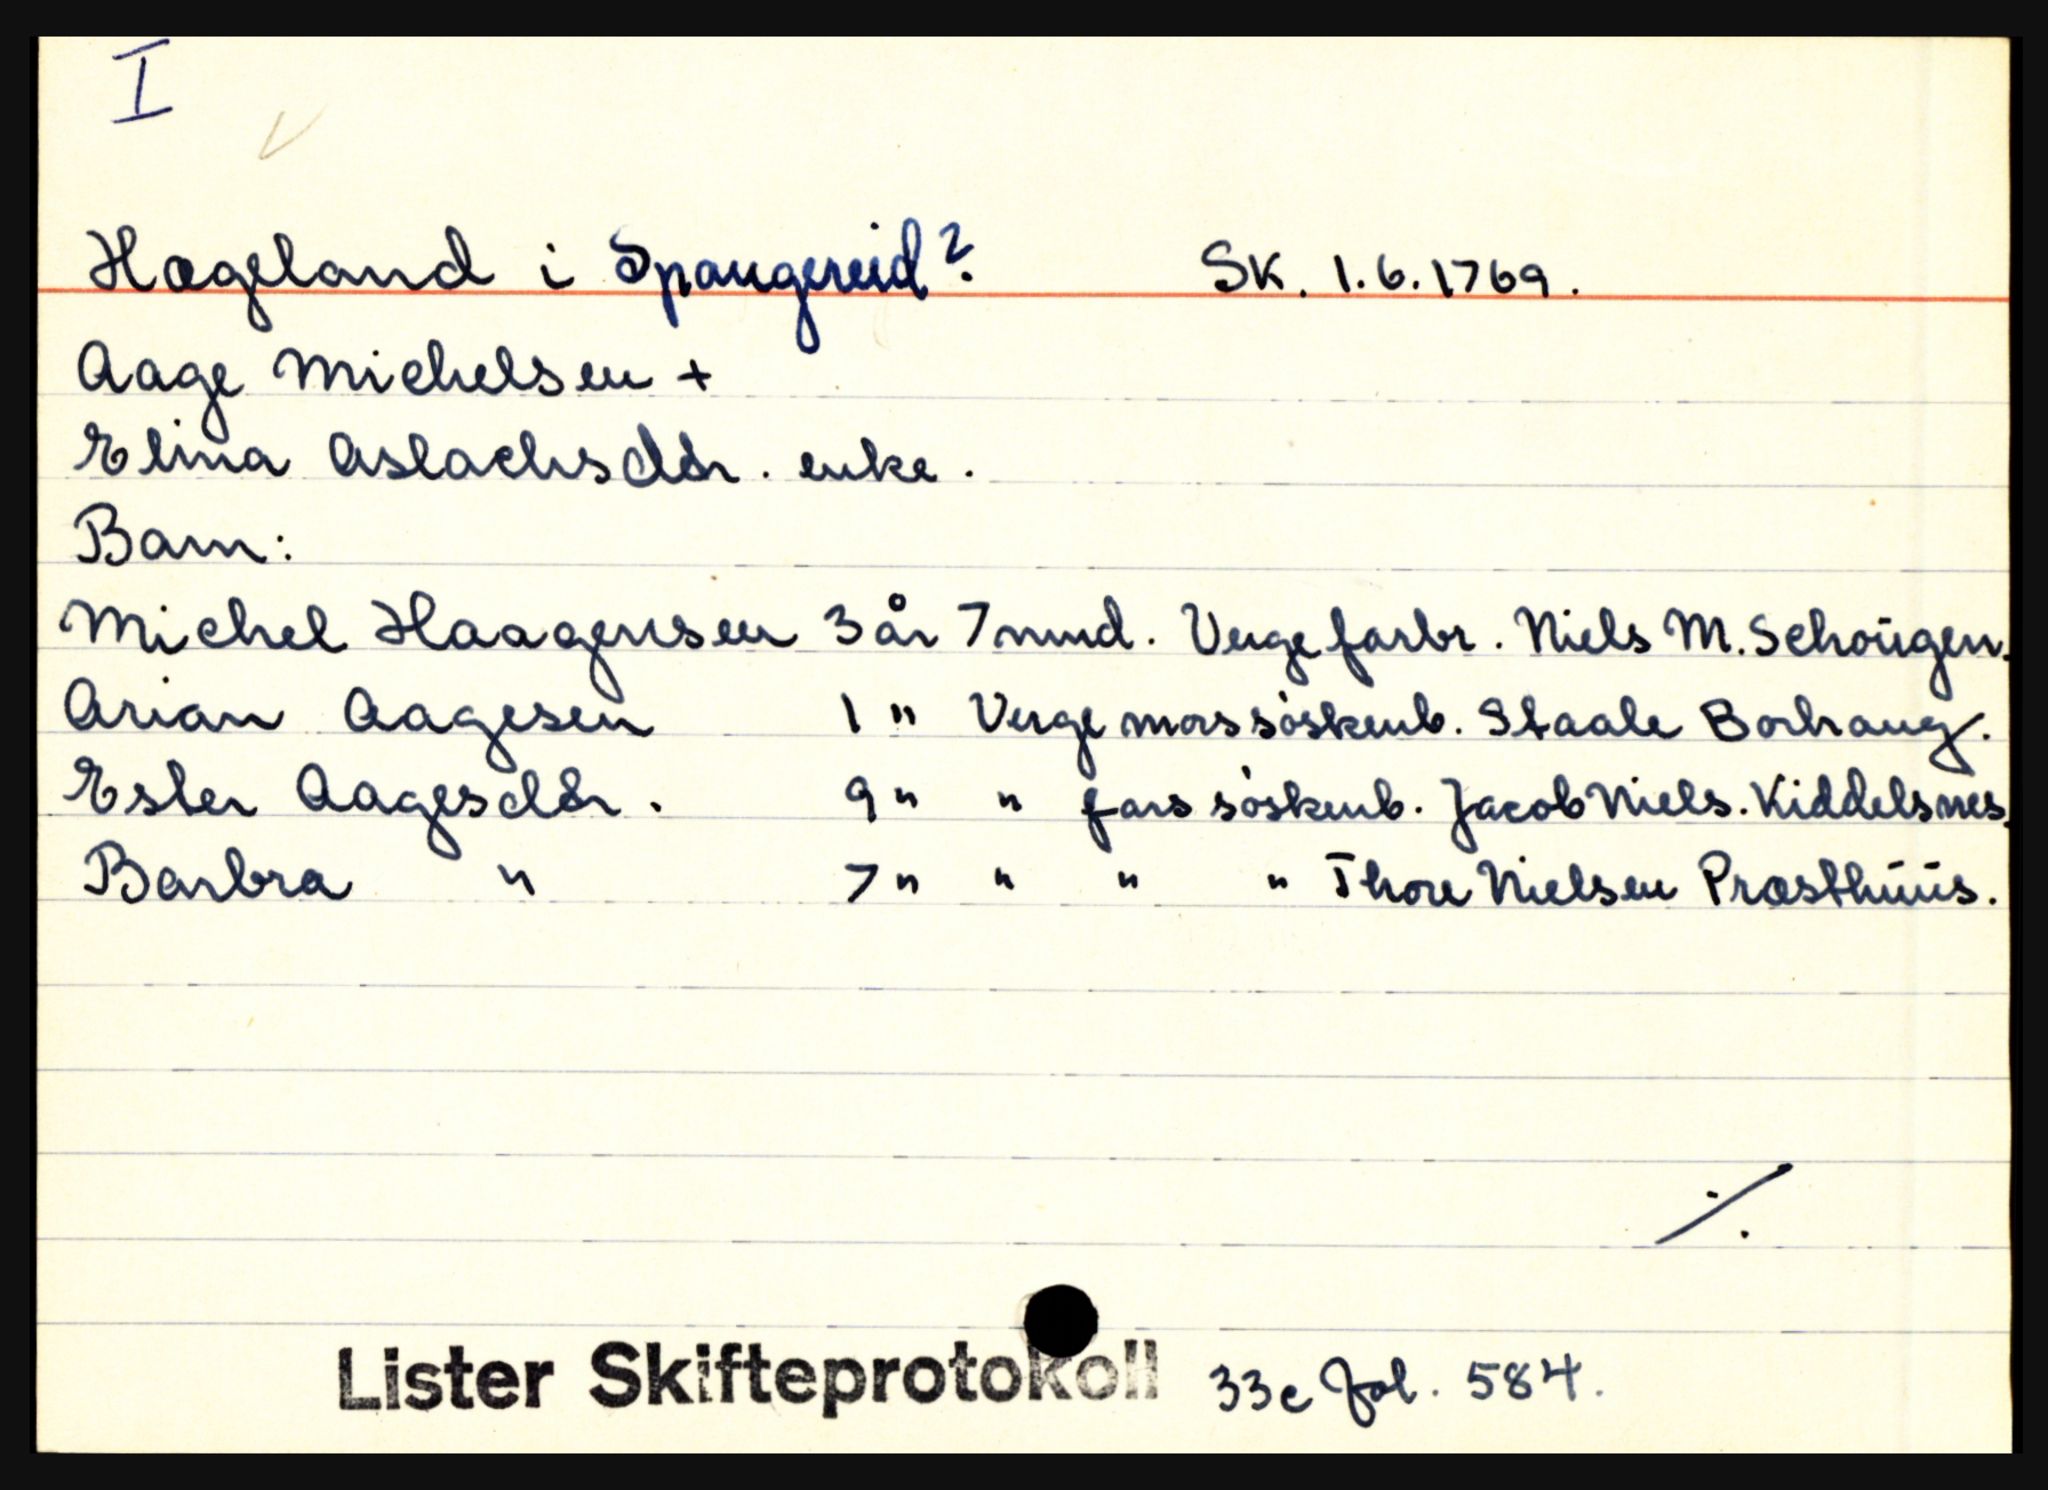 I
Hægeland i Spangereid? Sk. 1.6.1769.
Aage Michelsen +
Elina Aslachsdtr. enke.
Barn:
Michel Haagensen 3 år 7 mnd. Verge farbr. Niels M. Schoügen.
Arian Aagesen 1 " Verge mors söskenb. Staale Borhaug.
Ester Aagesdtr. 9 " " fars söskenb. Jacob Niels. Kiddelsnes.
Barbra " 7 " " " " Thore Nielsen Præsthüüs.
./.
Lister Skifteprotokoll 33c fol. 584.